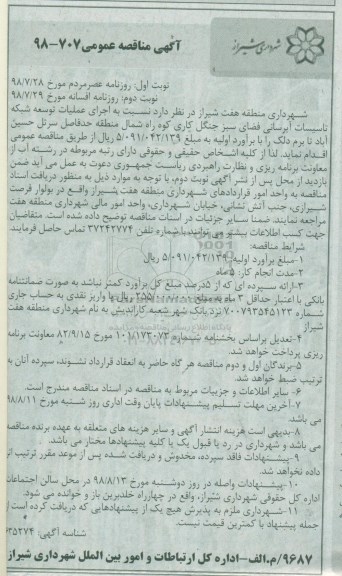 شهرداری شیراز
آگهی مناقصه عمومی ۷۰۷-۹۸
نوبت اول: روزنامه عصرمردم مورخ ۹۸/۷/۲۸
نوبت دوم: روزنامه افسانه مورخ ۹۸/۷/۲۹
شهرداری منطقه هفت شیراز در نظر دارد نسبت به اجرای عملیات توسعه شبکه
تاسیسات آبرسانی فضای سبز جنگل کاری کوه راه شمال منطقه حدفاصل سرتل حسین
آباد تا برم دلک را با برآورد اولیه به مبلغ ۵/۰۹۱/۰۴۲/۱۳۹ ریال از طریق مناقصه عمومی
اقدام نماید. لذا از کلیه اشخاص حقیقی و حقوقی دارای رتبه مربوطه در رشته آب از
معاونت برنامه ریزی و نظارت راهبردی ریاست جمهوری دعوت به عمل می آید ضمن
بازدید از محل پس از نشر آگهی نوبت دوم، با توجه به موارد ذیل به منظور دریافت اسناد
مناقصه به واحد امور قراردادهای شهرداری منطقه هفت شیراز واقع در بولوار فرصت
شیرازی، جنب آتش نشانی، خیابان شهرداری، واحد امور مالی شهرداری منطقه هفت
مراجعه نمایند. ضمنا سایر جزئیات در اسناد مناقصه توضیح داده شده است. متقاضیان
جهت کسب اطلاعات بیشتر می توانند با شماره تلفن ۳۷۲۴۲۷۷۴ تماس حاصل فرمایند.
شرایط مناقصه:
۱-مبلغ برآورد اولیه: ۵/۰۹۱/۰۴۲/۱۳۹ ریال
۲-مدت انجام کار: ۵ ماه
۳-ارائه سپرده ای که از ۵درصد مبلغ کل برآورد کمتر نباشد به صورت ضمانتنامه
بانکی با اعتبار حداقل ۳ ماه به مبلغ ریال یا واریز نقدی به حساب جاری
شماره ۷۰۰۷۹۳۵۴۵۱۲۳ نزد بانک شهر شعبه کاراندیش به نام شهرداری منطقه هفت
شیراز
۴-تعدیل براساس بخشنامه شماره ۱۰۱/۱۷۳۰۷۳ مورخ ۸۲/۹/۱۵ معاونت برنامه
ریزی پرداخت خواهد شد.
۵-برندگان اول و دوم مناقصه هر گاه حاضر به انعقاد قرارداد نشوند، سپرده آنان به
ترتیب ضبط خواهد شد.
۶- سایر اطلاعات و جزییات مربوط به مناقصه در اسناد مناقصه مندرج است.
۷-آخرین مهلت تسلیم پیشنهادات پایان وقت اداری روز شنبه مورخ ۹۸/۸/۱۱
می باشد.
۸-بدیهی است هزینه انتشار آگهی و سایر هزینه های متعلقه به عهده برنده مناقصه
می باشد و شهرداری در رد یا قبول یک یا کلیه پیشنهادها مختار می باشد.
۹-پیشنهادات فاقد سپرده، مخدوش و دریافت شده پس از موعد مقرر ترتیب اثر
داده نخواهد شد.
۱۰-پیشنهادات واصله در روز دوشنبه مورخ ۹۸/۸/۱۳ در محل سالن اجتماعات
اداره کل حقوقی شهرداری شیراز، واقع در چهارراه خلدبرین باز و خوانده می شود.
۱۱-شهرداری ملزم به پذیرش هیچ یک از پیشنهادهایی که دریافت کرده است از
جمله پیشنهاد با کمترین قیمت نیست.
شناسه آگهی:
۹۶۸۷/م.الف-اداره کل ارتباطات و امور بین الملل شهرداری شیراز